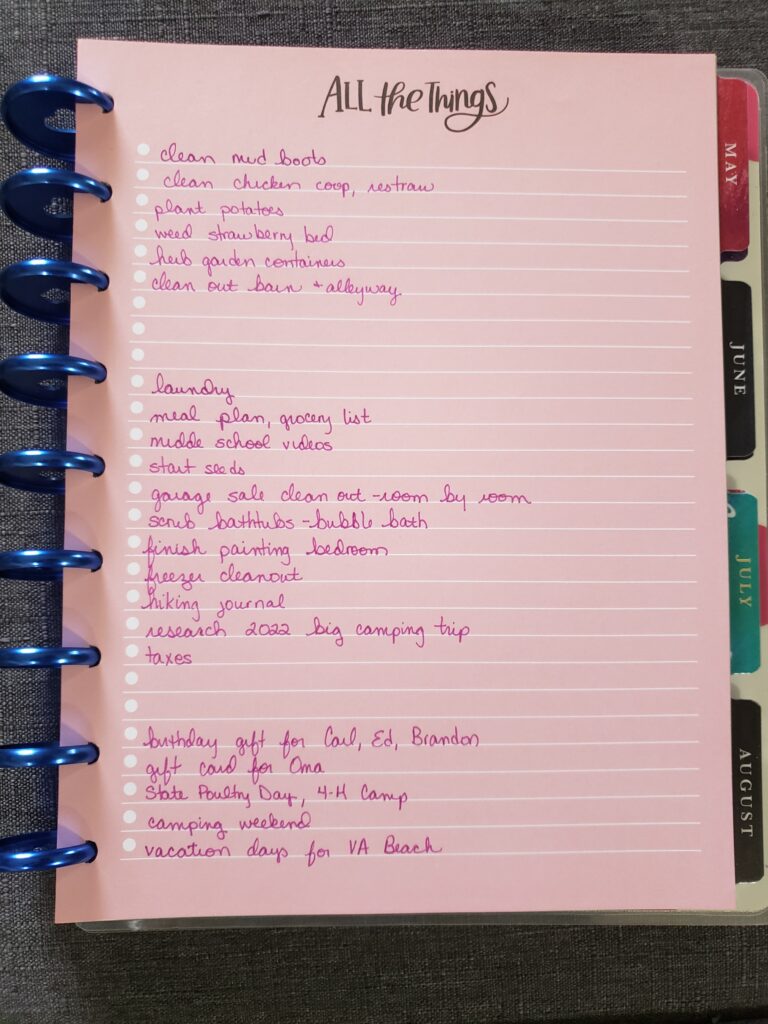 ALL the Things
clean mud boots
clean chicken coop, restraw
plant potatoes
weed strawberry bed
herb garden containers
clean out barn + alleyway
laundry
meal plan, grocery list
middle school videos
start seeds
garage sale clean out - room by room
scrub bathtubs - bubble bath
finish painting bedroom
freezer cleanout
hiking journal
research 2022 big camping trip
taxes
birthday gift for Carl, Ed, Brandon
gift card for Oma
State Poultry Day, 4-H Camp
camping weekend
vacation days for VA Beach
MAY
JUNE
JULY
AUGUST